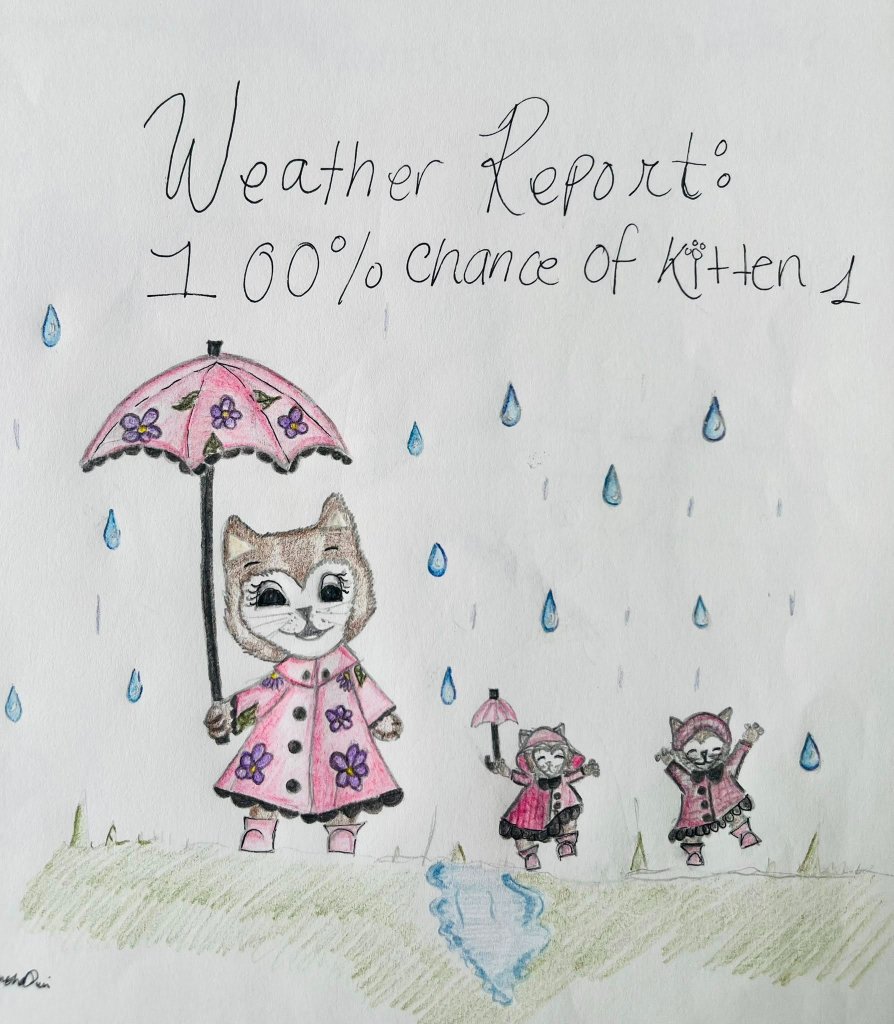 Weather Report:
100% chance of kitten 1